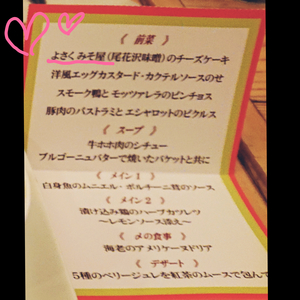 《 前菜 》
よさくみそ屋(尾花沢味噌)のチーズケーキ
洋風エッグカスタード・カクテルソースのせ
スモーク鴨と モッツァレラのピンチョス
豚肉のパストラミと エシャロットのピクルス
《 スープ 》
牛ホホ肉のシチュー
ブルゴーニュバターで焼いたバケットと共に
《 メイン1 》
白身魚のムニエル・ポルチーニ茸のソース
《 メイン2 》
漬け込み鶏のハーブカツレツ
～レモンソース添え～
《 〆の食事 》
海老のアメリケーヌドリア
《 デザート 》
5種のベリージュレを紅茶のムースで包んで